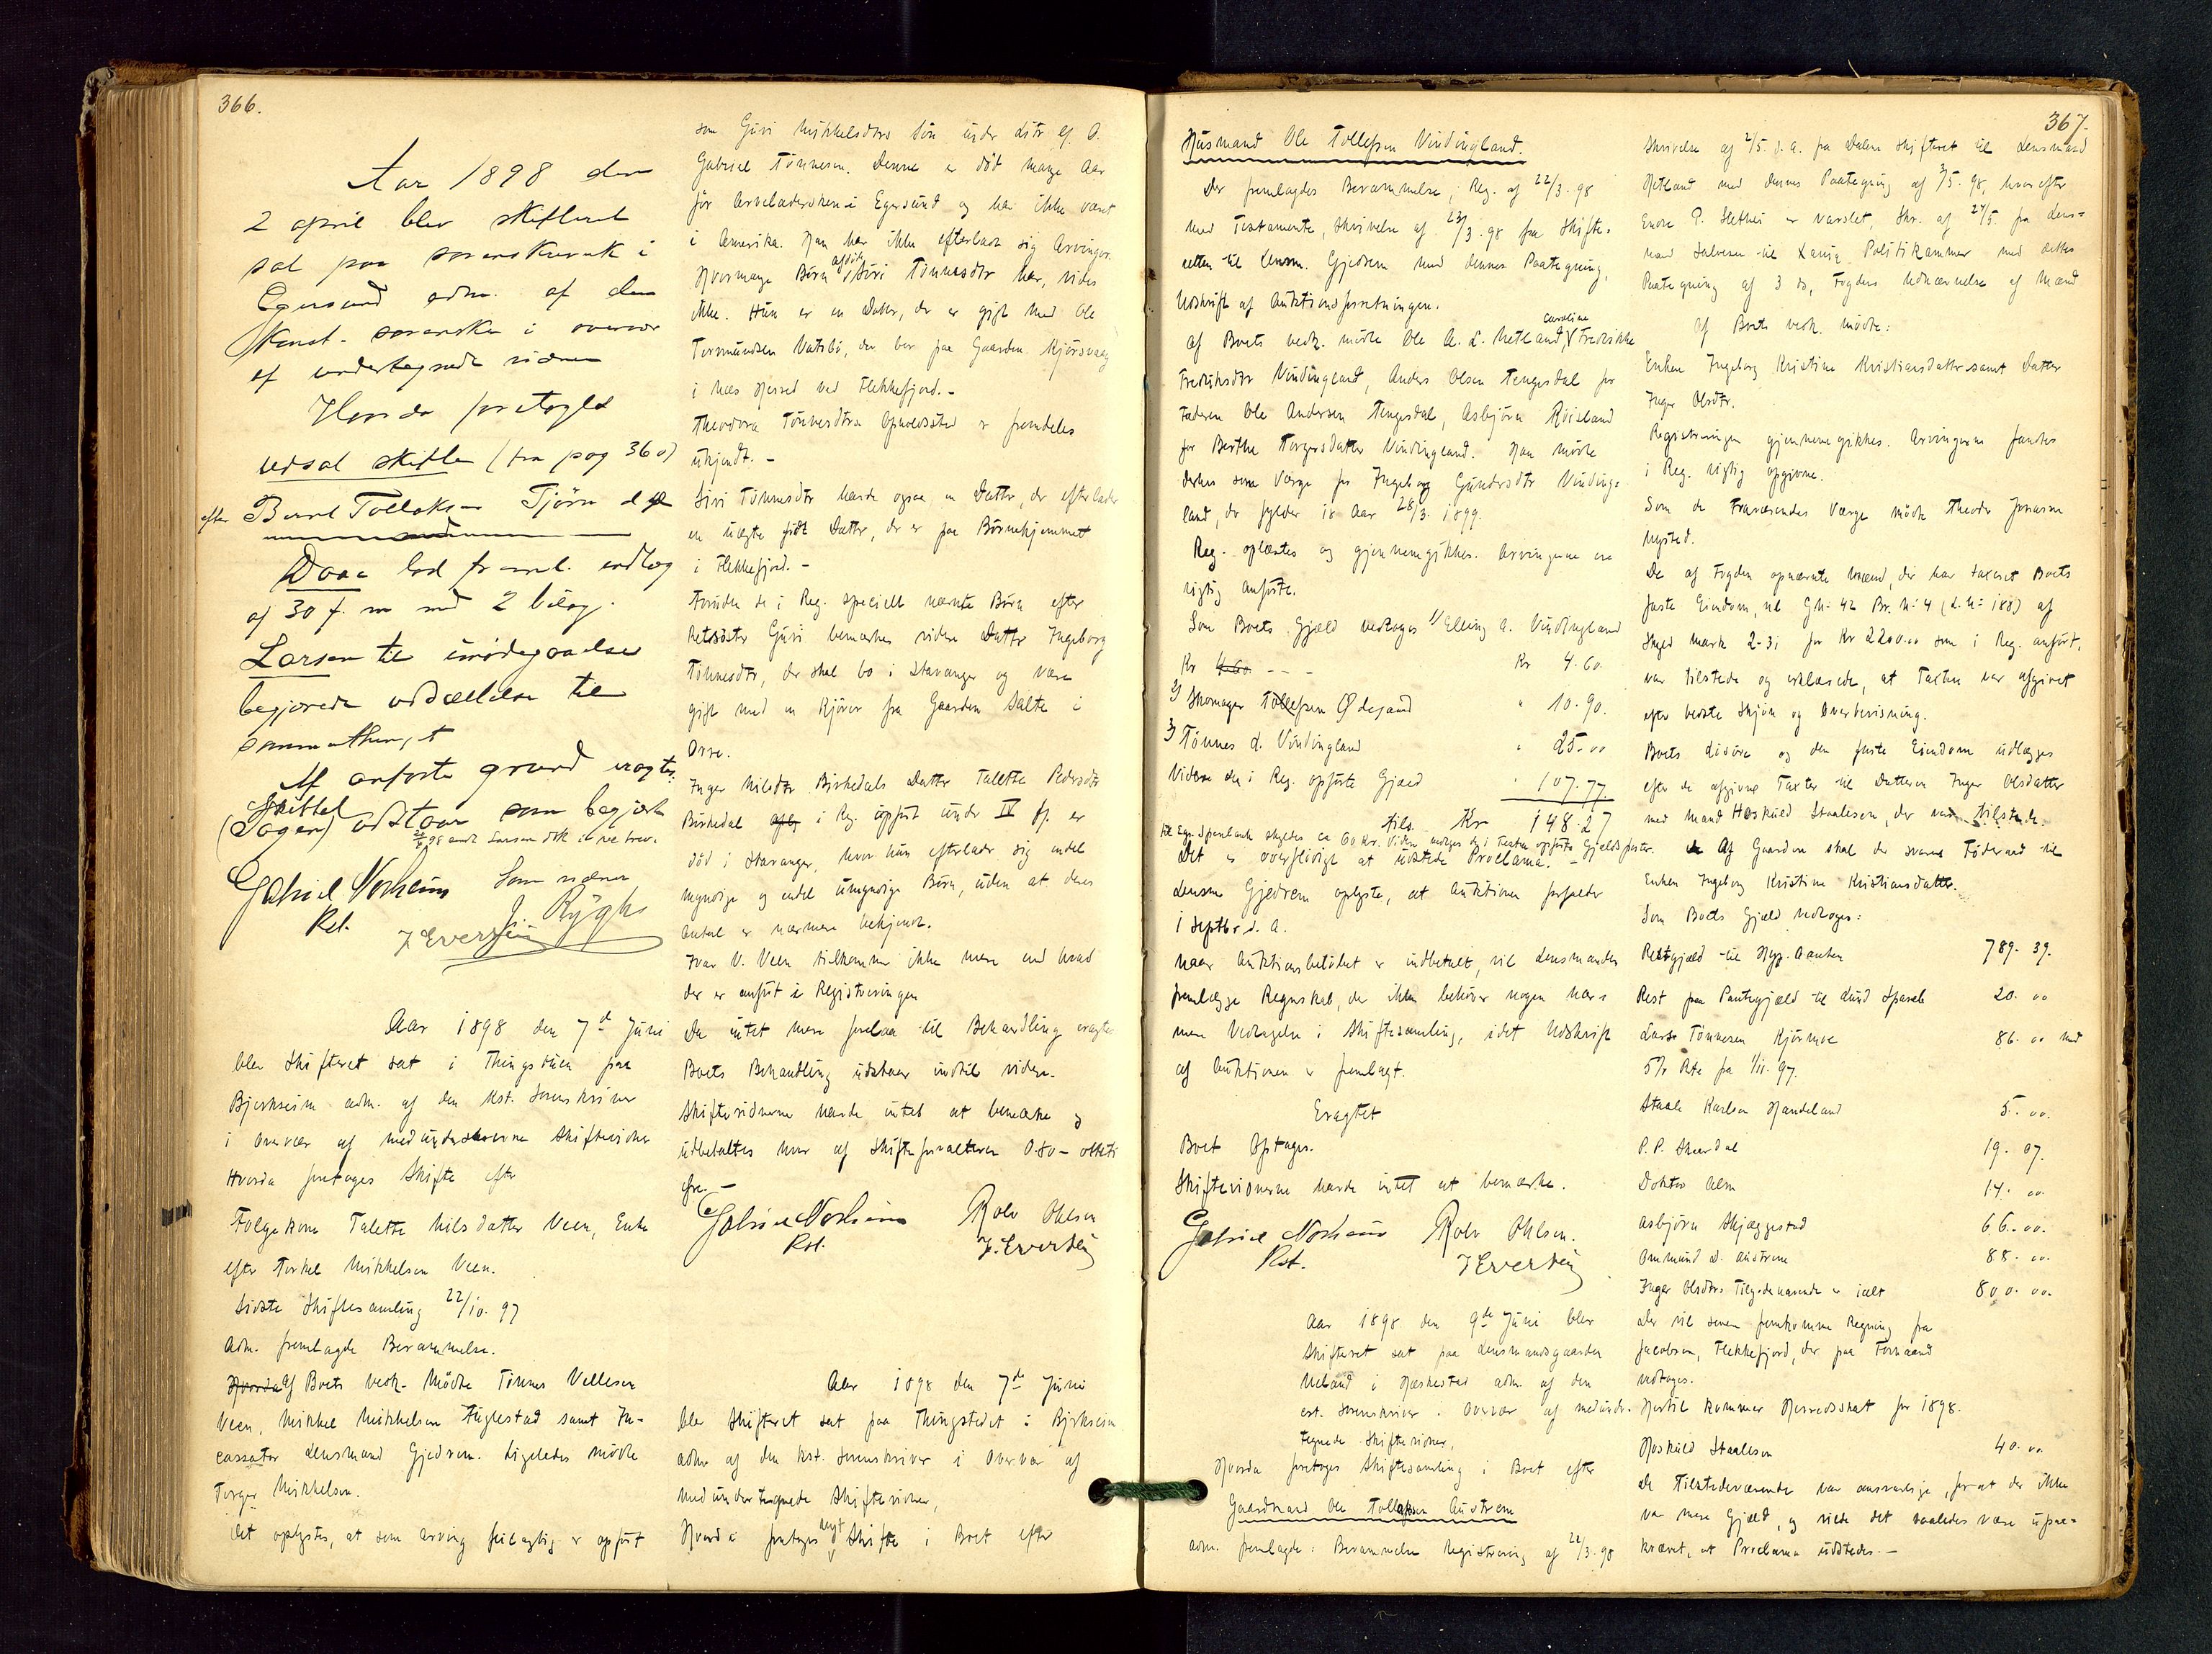 366.
Aar 1898 den
2 april blev skifteret
sat paa sorenskriverk i
Egersund adm. af den
Konst. sorenskr i overvær
af undertegnede vidner
Hvorda foretoges
udsat skifte (fra pag 360)
efter Berent Tollaks Tjörn
Daae lod freml. indlæg
af 30 f. m med 2 bilag.
Larsen til imödegaaelse
begjærede udsættelse til
sammathing, t
Af anförte grund eragtes:
Skiftet
(Sagen) udstaar som begjært
Gabriel Norheim Som vidner
Kst. J. Rygh
J Evertsen
Aar 1898 den 7d Juni
blev Skifteret sat i Thingstuen paa
Bjerkreim adm. af den Kst. Sorenskriver
i Overvær af medunderskrevne Skiftevidner
Hvorda foretoges Skifte efter
Folgekone Talette Nilsdatter Veen, Enke
efter Torkel Mikkelsen Veen.
Sidste Skiftesamling 22/10. 97
Adm. fremlagde Berammelse.
Hvorda Af Boets vedk. Mödte Tönnes Vellesen
Veen, Mikkel Mikkelsen Fuglestad samt In-
cassator Lensmand Gjedrem. Ligeledes mödte
Torger Mikkelsen.
Det oplystes, at som Arving feilagtig er opfört
som Guri Mikkelsdtrs Sön under Litr
Gabriel Tönnesen. Denne er död mange Aar
för Arveladersken i Egersund og har ikke været
i Amerika. Han har ikke efterladt sig Arvinger.
Hvormange Börn afdöde Siri Tönnesdtr har, vides
ikke. Hun er en Datter, der er gift med Ole
Tormundsen Vatsbö, der bor paa Gaarden Kjörsvaag
i Næs Herred ved Flekkefjord.-
Theodora Tönnesdtrs Opholdssted er fremdeles
ukjendt.-
Siri Tönnesdtr havde ogsaa en Datter, der efterlader
en uægte född Datter, der er paa Börnehjemmet
i Flekkefjord.-
Foruden de i Reg. specielt nævnte Börn efter
Guri bemærkes videre Datter Ingeborg
Tönnesdtr, der skal bo i Stavanger og være
gift med en Kjörer fra Gaarden Salte i
Orre.
Inger Nilsdtr Birkedals Datter Talette Pedersdtr
Birkedal i Reg. opfört under IV er
död i Stavanger, hvor hun efterlader sig endel
myndige og endel umyndige Börn, uden at deres
Antal er nærmere bekjendt.
Ivar V. Veen tilkommer ikke mere end hvad
der er anfört i Registreringen
Da intet mere forelaa til Behandling eragtes
Boets Behandling udstaar indtil videre.
Skiftevidnerne havde intet at bemærke og
udbetaltes hver af Skifteforvalteren 0.80 - otteti
Öre.-
Gabriel Norheim Rolv Ohlsen
Kst. J. Evertsen
Aar 1898 den 7de Juni
blev Skifteret sat paa Thingstedet i Bjerkreim
adm af den Kst. Sorenskriver i Overvær af
medundertegnede Skiftevidner,
Hvorda foretoges nyt Skifte i Boet efter
367.
Husmand Ole Tollefsen Vindingland.
Der fremlagdes Berammelse, Reg. af 22/3. 98
med Testamente, Skrivelse af 23/3. 98 fra Skifte-
retten til Lensm. Gjedrem med dennes Paategning,
Udskrift af Auktionsforretningen.
Af Boets vedk. mödte Ole A. L. Netland, Caroline Fredrikke
Fredriksdtr Vindingland, Anders Olsen Tengesdal for
Faderen Ole Andersen Tengesdal, Asbjörn Röisland
for Berthe Torgersdatter Vindingland. Han mödte
derhos som Værge for Ingeborg Gundersdtr Vinding-
land, der fylder 18 Aar 28/3. 1899.
Reg. oplæstes og gjennemgikkes. Arvingerne ere
rigtig anförte.
Som Boets Gjæld vedtoges 1/ Elling A. Vindingland
Kr 4.60. - - - Kr 4.60.
2/ Skomager Tollefsen Ödegaard " 10.90.
3/ Tönnes d. Vindingland " 25.00
Videre den i Reg. opförte Gjæld " 107.77
tils. Kr 148.27
Til Eger. Sparebank skyldes ca 60 Kr. Videre vedtoges de i Taxten opförte Gjældsposter.
Det er overflödigt at udstede Proclama.-
Lensm Gjedrem oplyste, at Auktionen forfalder
i Septbr d. A.
Naar Auktionsbelöbet er indbetalt, vil Lensmanden
fremlægge Regnskab, der ikke behöver nogen nær-
mere Vedtagelse i Skiftesamling, idet Udskrift
af Auktionen er fremlagt.
Eragtet
Boet Optages.
Skiftevidnerne havde intet at bemærke.
Gabriel Norheim Rolv Ohlsen.
Kst. J Evertsen
Aar 1898 den 9de Juni blev
Skifteret sat paa Lensmandsgaarden
Meland i Heskestad adm. af den
cst. Sorenskriver i Overvær af medunder-
tegnede Skiftevidner,
Hvorda foretoges Skiftesamling i Boet efter
Gaardmand Ole Tollefsen Austrem
Adm. fremlagde: Berammelse Registrering af 22/3. 98
Skrivelse af 2/5. d. A. fra Dalene Skifteret til Lensmand
Hetland med dennes Paategning af 3/5. 98, hvorefter
Endre P. Slethei er varslet, Skr. af 24/5. fra Lens-
mand Salvesen til Xania Politikammer med dettes
Paategning af 3 ds, Fogdens Udnævnelse af Mænd
Af Boets vedk. mödte:
Enken Ingeborg Kristine Kristiansdatter samt Datter
Inger Olsdtr.
Registreringen gjennemgikkes. Arvingerne fandtes
i Reg. rigtig opgivne.
Som de Fraværendes Værge mödte Theodor Jonassen
Nysted.
De af Fogden opnævnte Mænd, der har taxeret Boets
faste Eiendom, nl GNo 42 Br. No 4 (L. No 180) af
Skyld Mark 2-31 for Kr 2200.00 som i Reg. anfört,
var tilstede og erklærede, at Taxten var afgivet
efter bedste Skjön og Overbevisning.
Boets Lösöre og den faste Eiendom udlægges
efter de afgivne Taxter til Datteren Inger Olsdatter
med Mand Höskuld Staalesen, der var tilstede.
Af Gaarden skal der svares Föderaad til
Enken Ingeborg Kristine Kristiansdatter.
Som Boets Gjæld vedtoges:
Restgjæld til Hyp. Banken 789. 39.
Rest paa Pantegjæld til Lund Spareb 20. 00
Lars Tönnesen Kjörmoe 86. 00 med
5% Rte fra 1/11. 97.
Staale Karlsen Handeland 5. 00.
P. P. Skaardal 19. 07.
Doktor Alm 14. 00
Asbjörn Skjæggestad 66. 00.
Ommund d. Austrem 88. 00.
Inger Olsdtrs Tilgodehavende er ialt 800. 00.
Der vil senere fremkomme Regning fra
Jacobsen, Flekkefjord, der paa Forhaand
vedtoges.
Hertil kommer Herredsskat for 1898.
Höskuld Staalesen 40. 00
De Tilstedeværende var ansvarlige, for at der ikke
var mere Gjæld, og vilde det saaledes være upaa-
krævet, at Proclama udstedes.-